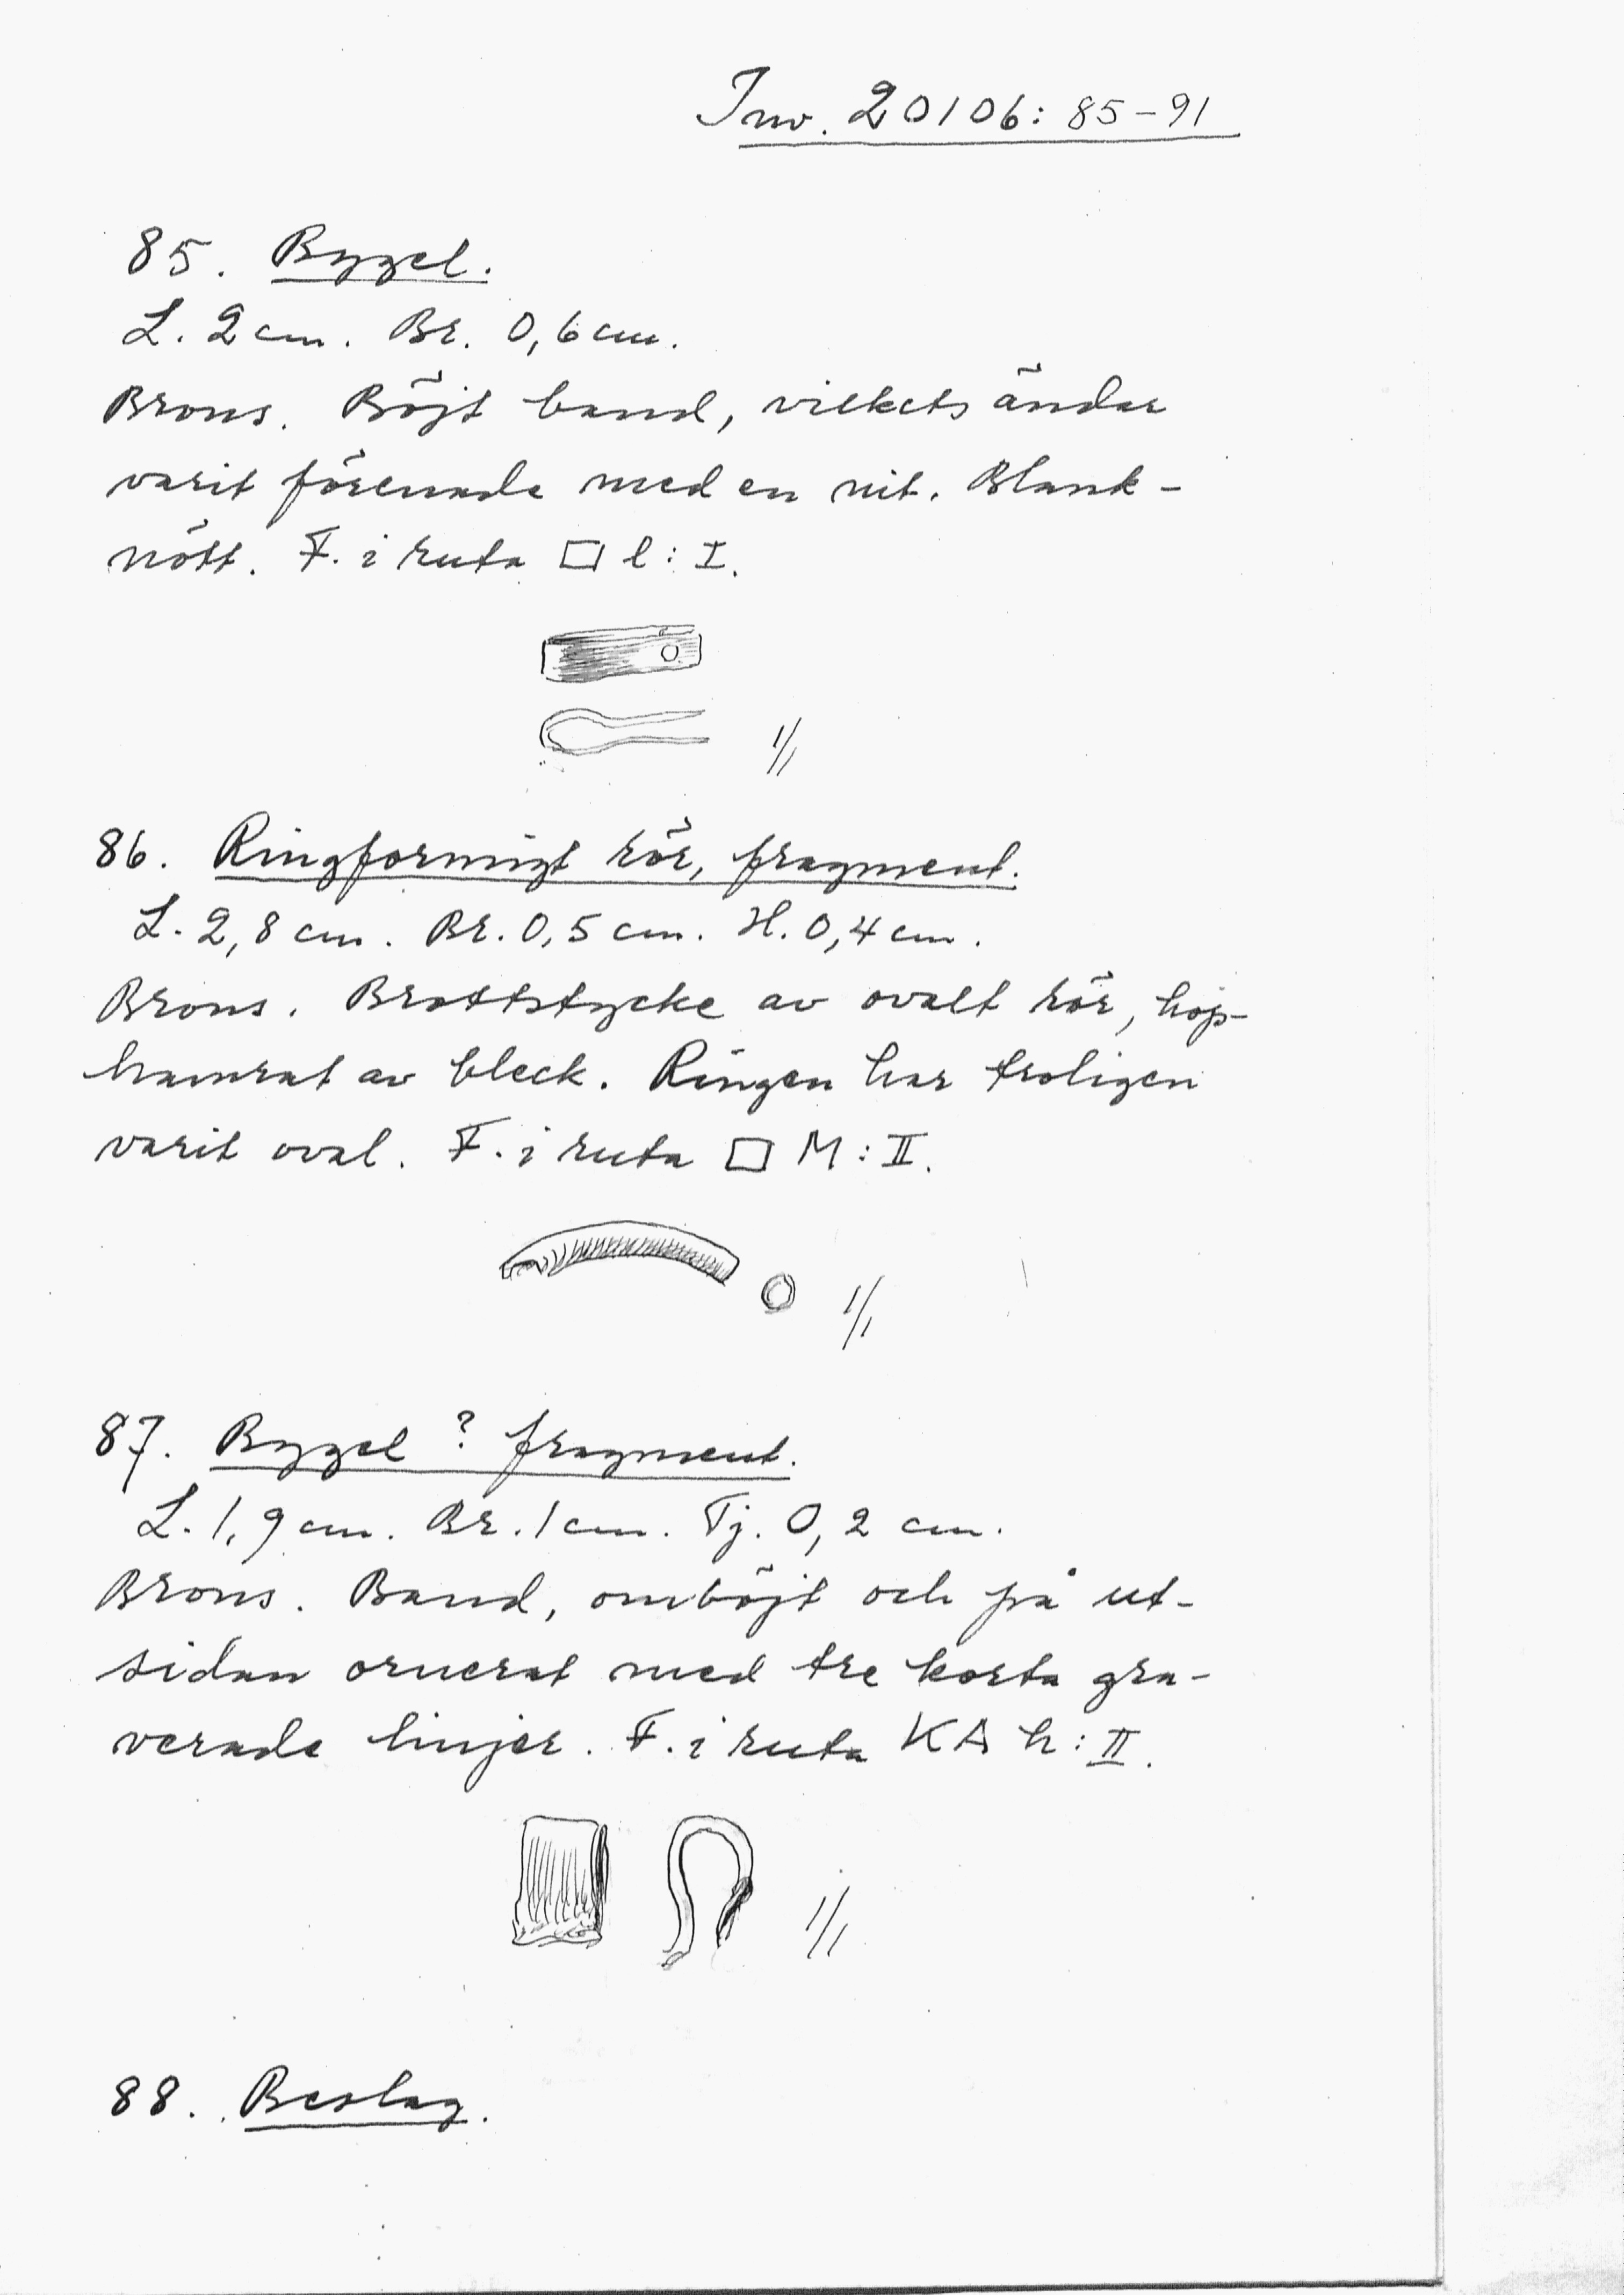 Inv. 20106: 85-91
85. Bygel.
L. 2 cm. Br. 0,6 cm.
Brons. Böjt band, vilkets ändar
varit förenade med en nit. Blank-
nött. F. i ruta □ l: I.
1/1
86. Ringformigt rör, fragment.
L. 2,8 cm. Br. 0,5 cm. H. 0,4 cm.
Brons. Brottstycke av ovalt rör, hop-
hamrat av bleck. Ringen har troligen
varit oval. F. i ruta □ M: II.
1/1
87. Bygel? fragment.
L. 1,9 cm. Br. 1 cm. Tj. 0,2 cm.
Brons. Band, omböjt och på ut-
sidan ornerat med tre korta gra-
verade linjer. F. i ruta KA h: II.
1/1
88. Beslag.